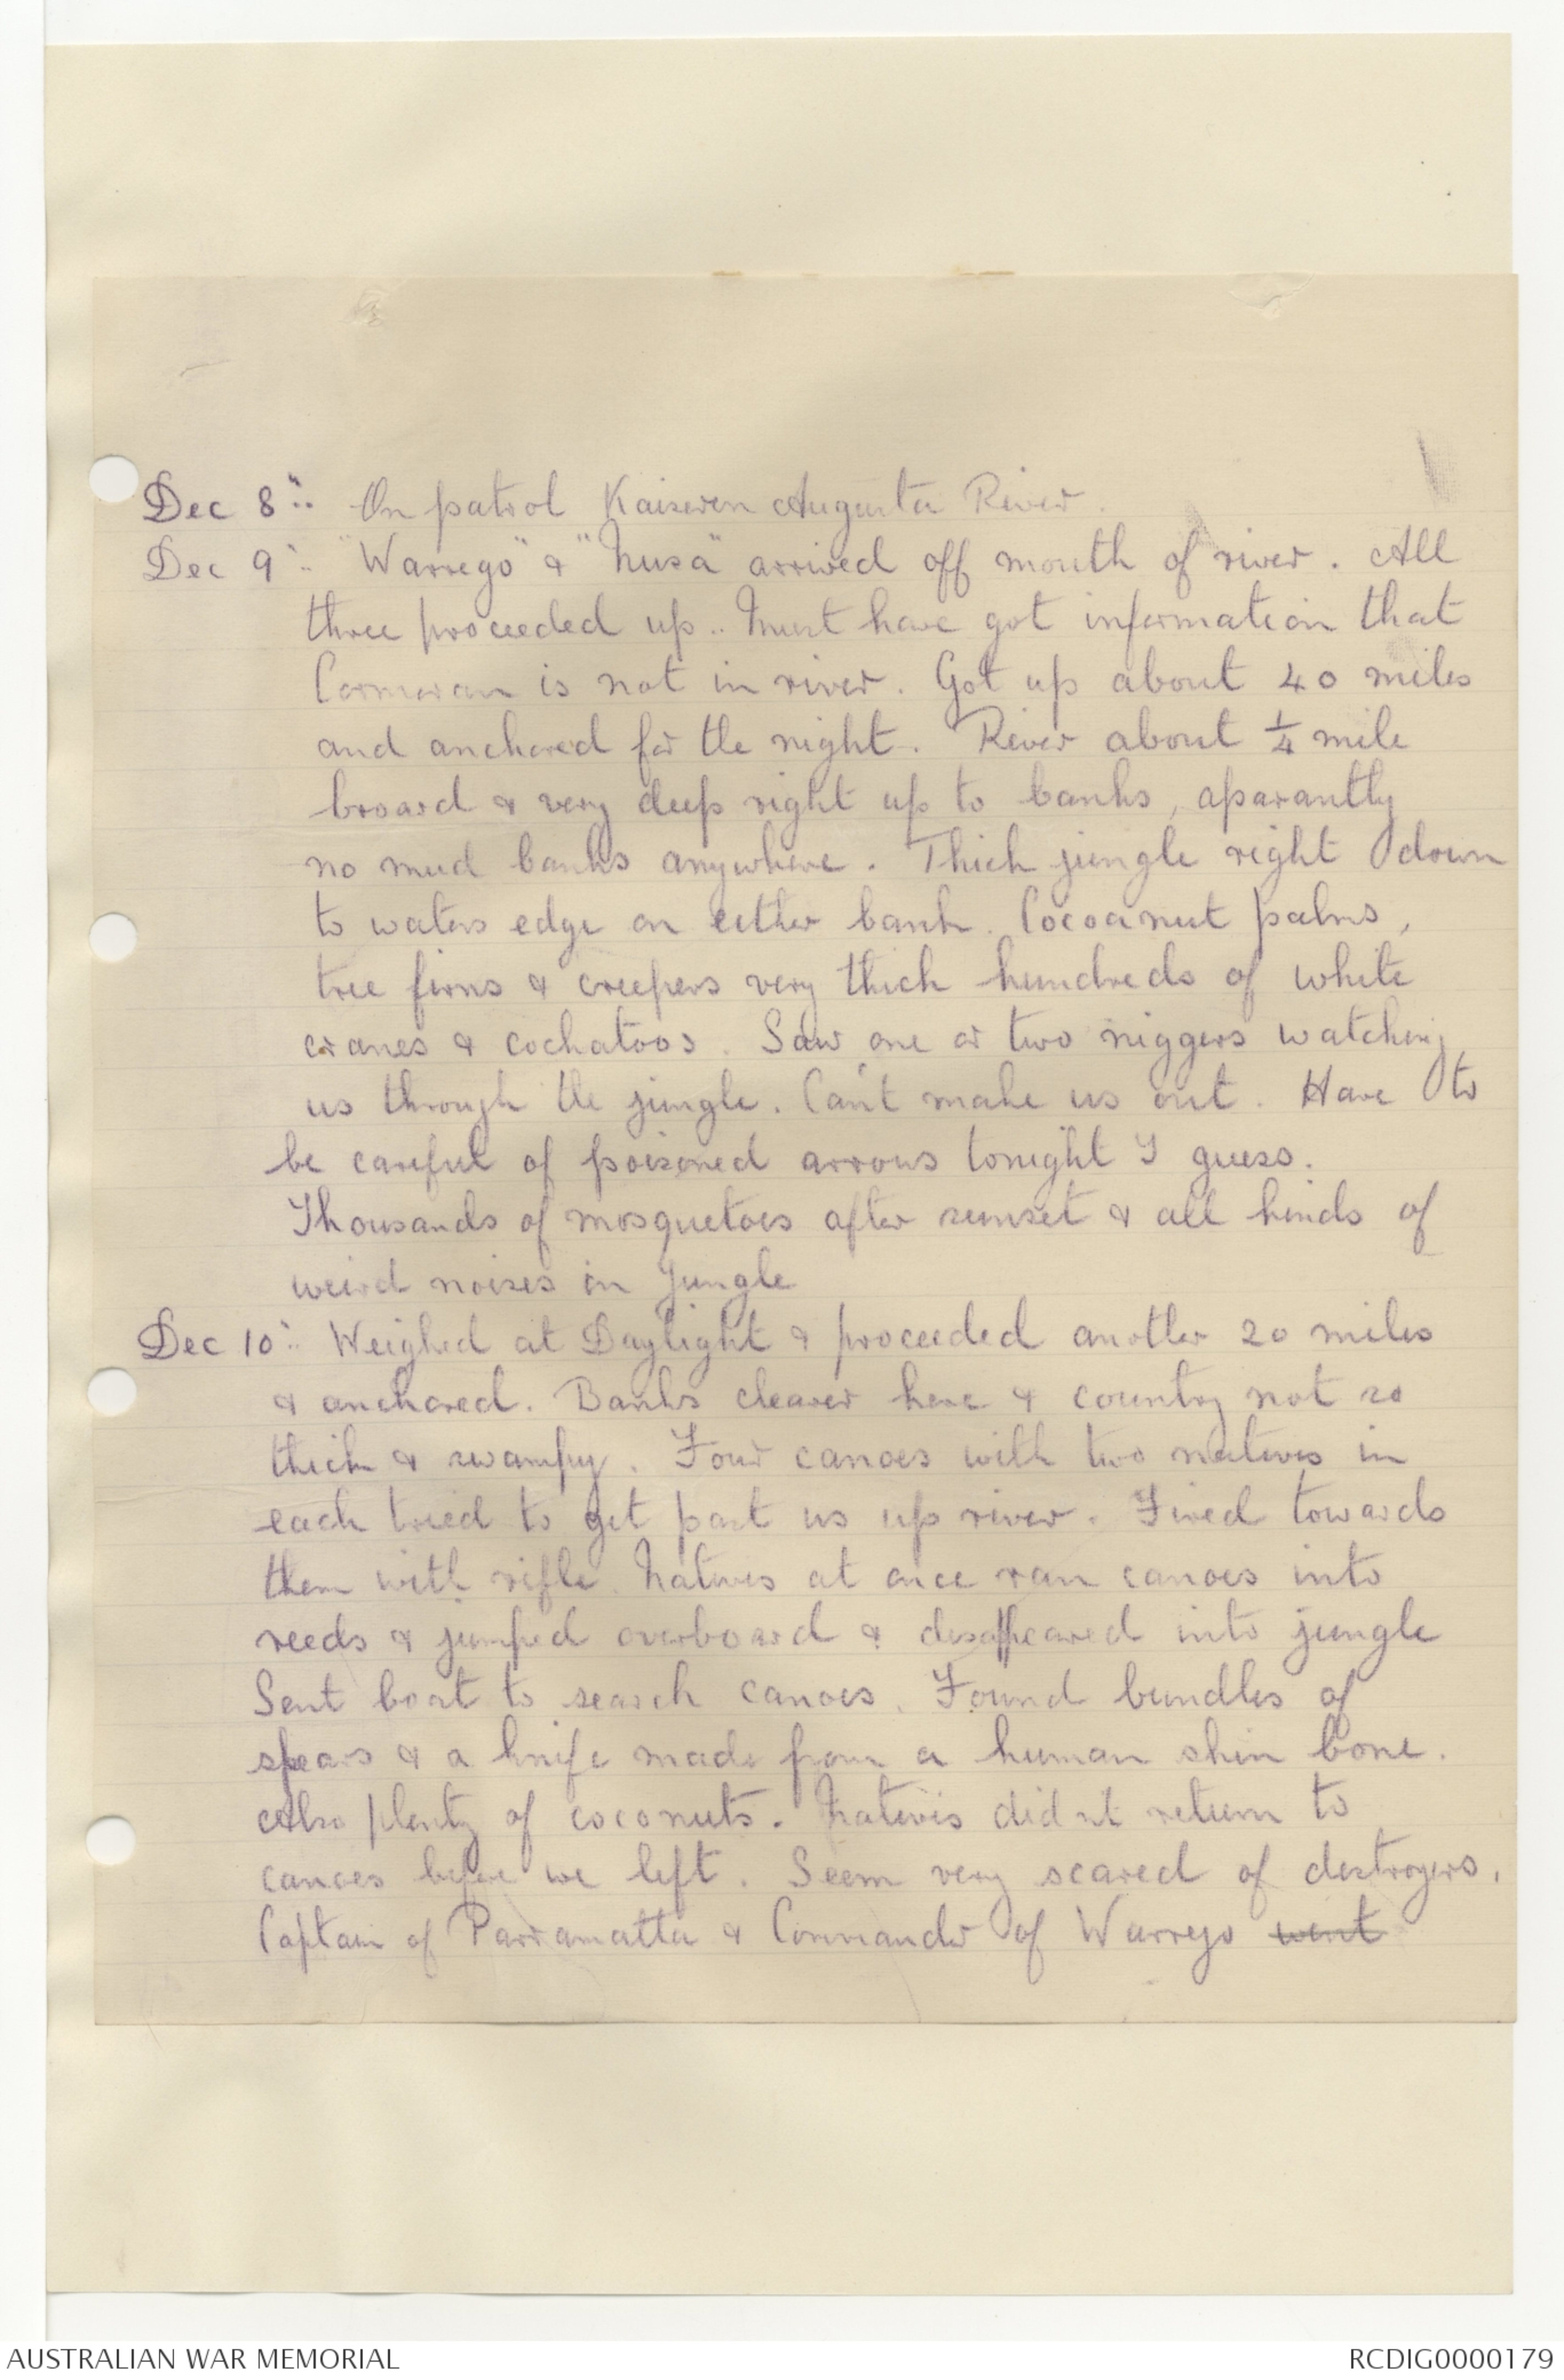 Dec 8". On patrol Kaiseren Augusta River.
Dec 9". "Warrego" & "Nusa" arrived off mouth of river. All
three proceeded up.. Must have got information that
Cormoran is not in river. Got up about 40 miles
and anchored for the night. River about 1/4 mile
broard & very deep right up to banks, aparantly
no mud banks anywhere. Thick jungle right down
to waters edge on either bank. Cocoanut palms,
tree firns & creepers very thick hundreds of white
cranes & cockatoos. Saw one or two niggers watching
us through the jungle. Can't make us out. Have to
be careful of poisoned arrows tonight I guess.
Thousands of mosquetoes after sunset & all kinds of
weird noises in Jungle
Dec 10". Weighed at Daylight & proceeded another 20 miles
& anchored. Banks clearer here & country not so
thick & swampy. Four canoes with two natives in
each tried to get past us up river. Fired towards
them with rifle. Natives at once ran canoes into
reeds & jumped overboard & disappeared into jungle
Sent boat to search canoes. Found bundles of
spears & a knife made from a human shin bone.
Also plenty of coconuts. Natives didnt return to
canoes before we left. Seem very scared of destroyers.
Captain of Parramatta & Commander of Warrego went
AUSTRALIAN WAR MEMORIAL
RCDIG0000179